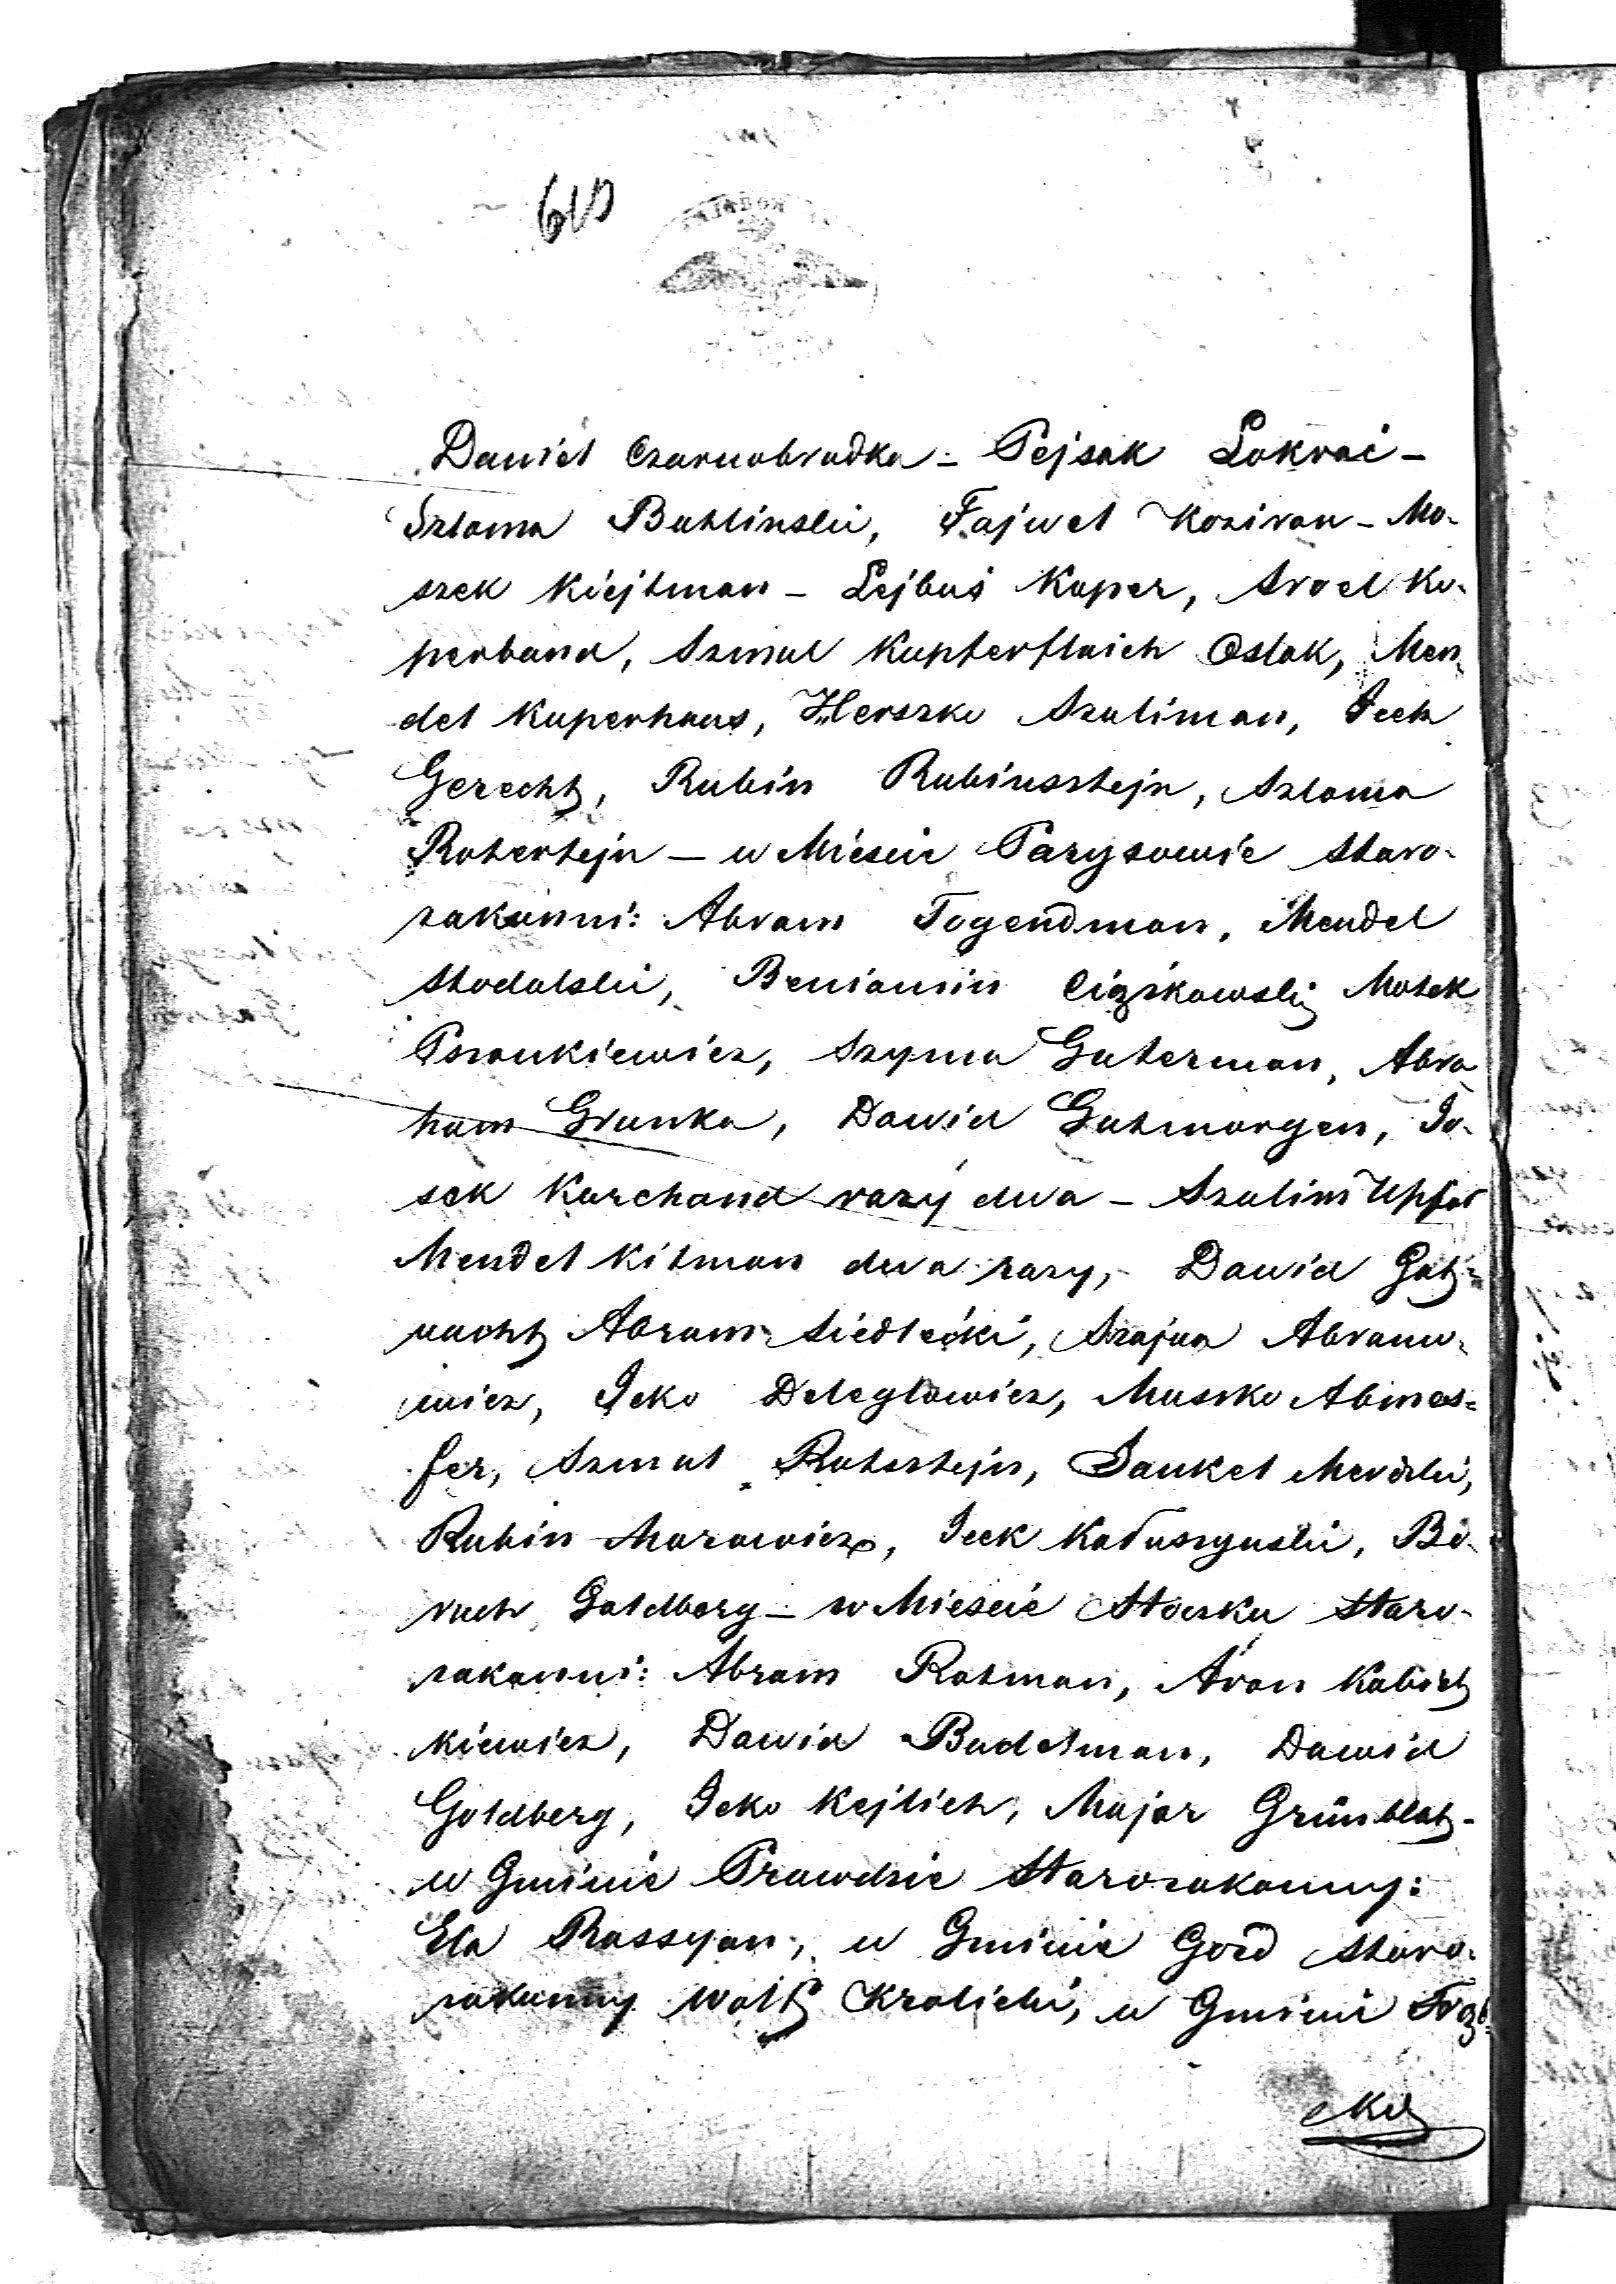 610
Daniel Czarnobrodka - Pejsak Lokrac -
Szloma Buklinski, Fajwel Koziran - Mo-
szek Kiejtman - Lejbuś Koper, Aroel Ko-
perband, Szmul Kupferflaich Ostak, Men-
del Kuperhaus, Herszko Szuliman, Icek
Gerecht, Rubin Rubinsztejn, Szloma
Rotersztejn - w Mieście Parysowie Staro-
zakonni: Abram Togendman, Mendel
Stodolski, Beniamin Ciąskowski, Motek
Pozonkiewicz, Szyma Guterman, Abra-
ham Granka, Dawid Gutmorgen, Jo-
sek Karchand razy dwa - Szulim Upfal
Mendel Kitman dwa razy, - Dawid Gut-
nacht Abram Siedlecki, Szajna Abramo-
wicz, Icko Deleglowicz, Moszko Abines-
fer, Szmul Rotsztejn, Jankel Merdski,
Rubin Morowicz, Icek Kałuszynski, Bo-
ruch Goldberg - w Mieście Stoczku Staro-
zakonni: Abram Rotman, Aron Kabiet-
kiewicz, Dawid Budelman, Dawid
Goldberg, Icko Kejlich, Major Grünblat -
w Gminie Prawdzie Starozakonny:
Ela Rossyan, w Gminie Gord Staro-
zakonny Wolf Krolicki, w Gminie Trąb-